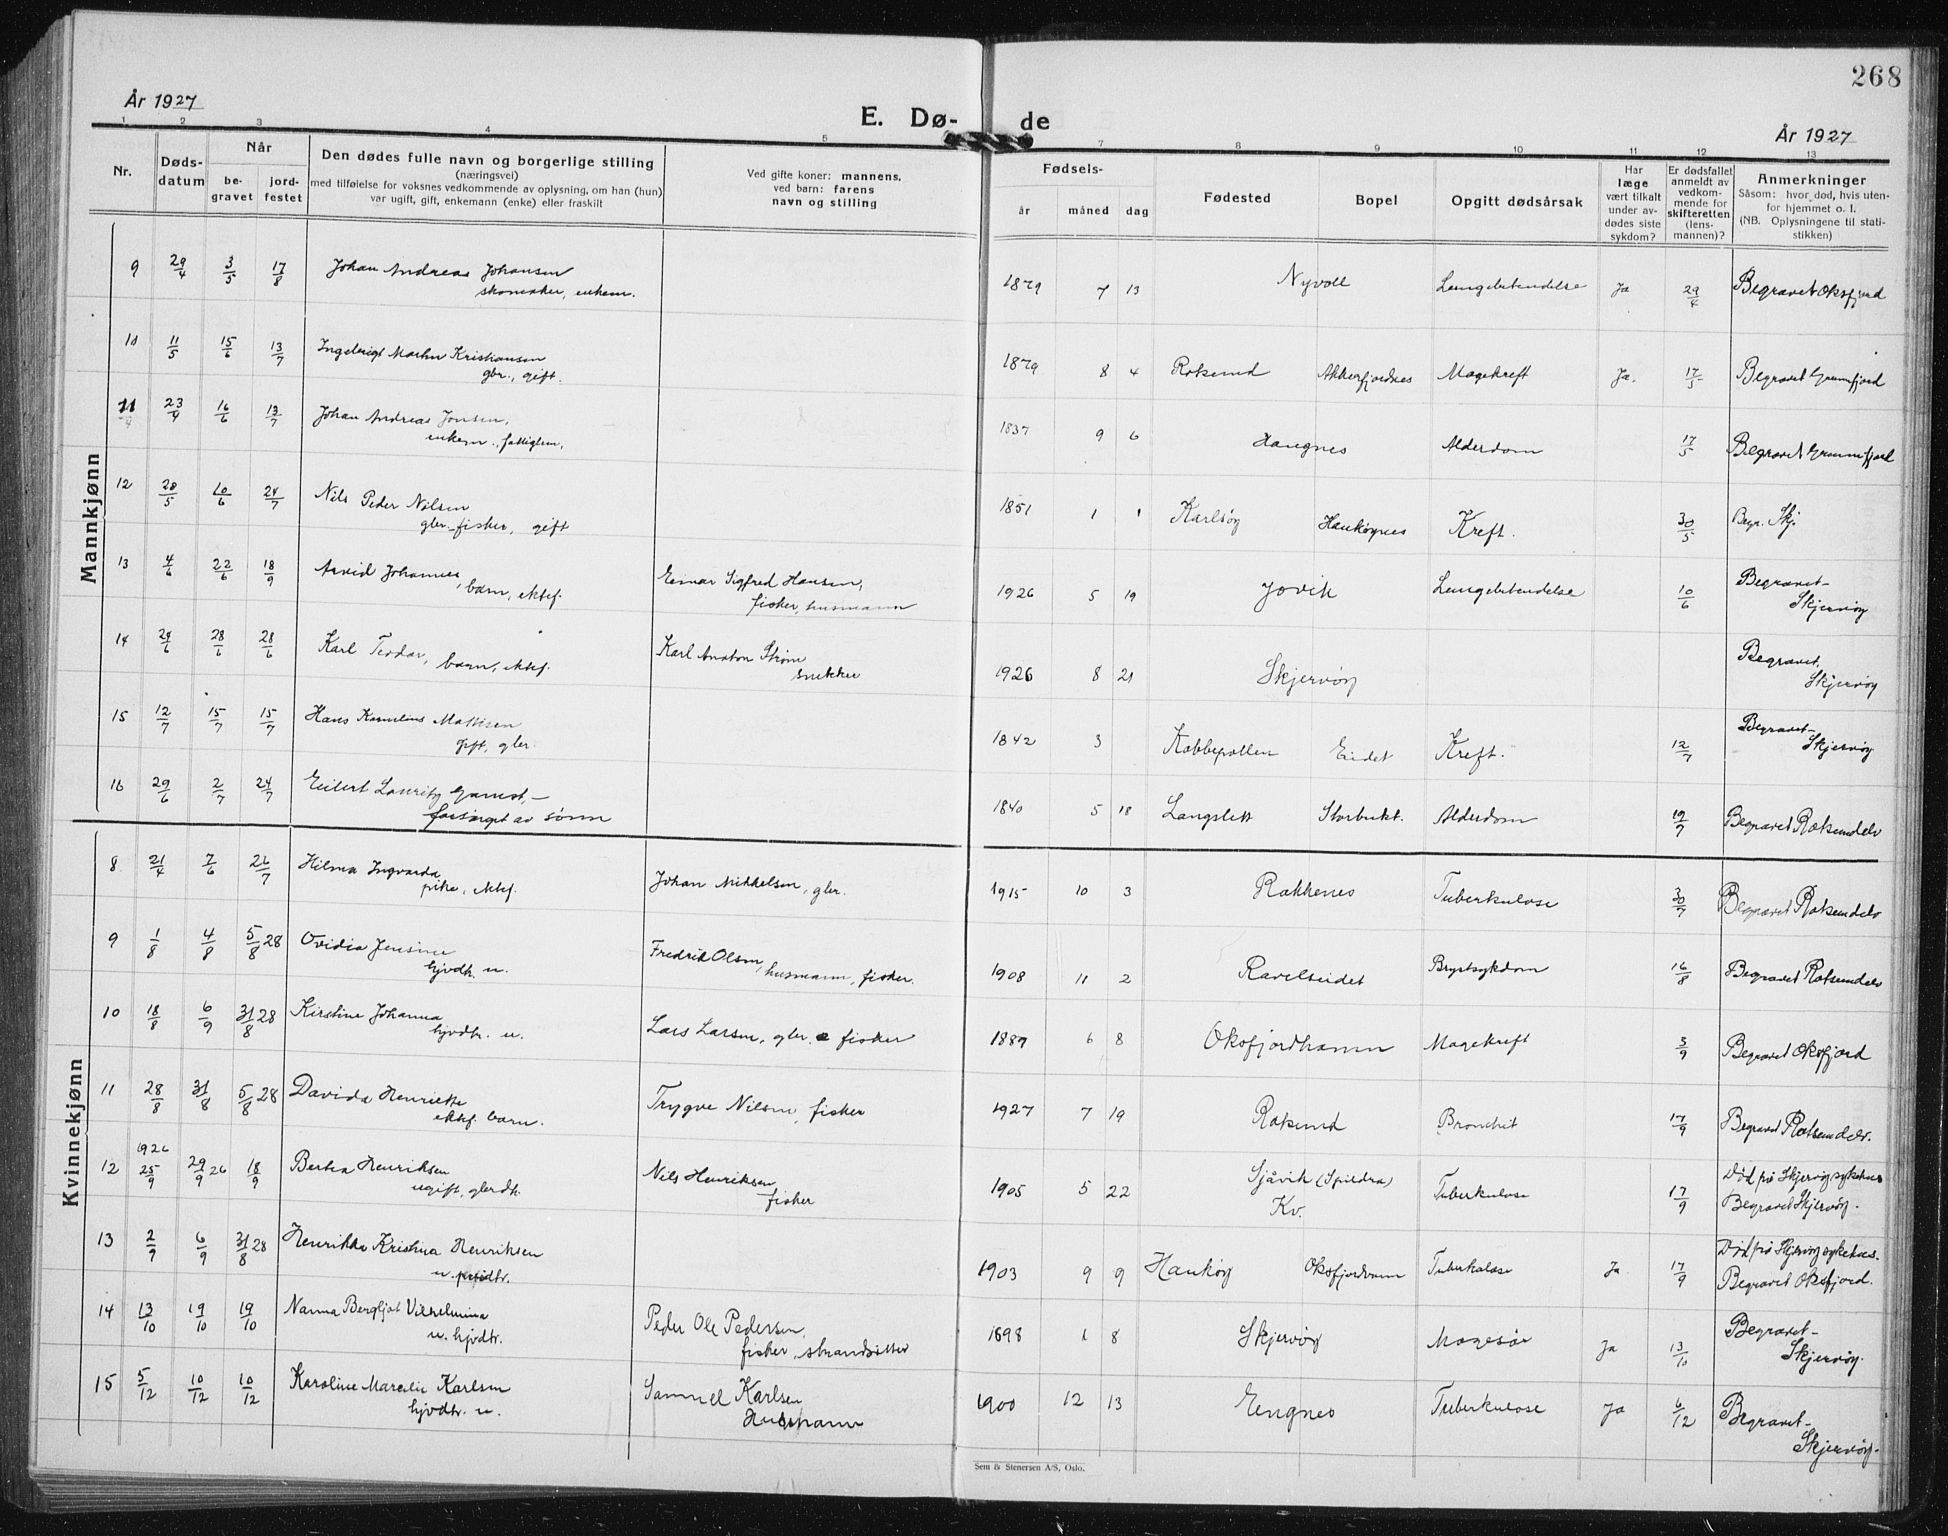 268
År 1927
E. Dø-
de
År 1927
1 2 3 4 5 7 8 9 10 11 12 13
Nr.
Døds-
datum
Når
be-
gravet
jord-
festet
Den dødes fulle navn og borgerlige stilling
(næringsvei)
med tilføielse for voksnes vedkommende av oplysning, om han (hun)
var ugift, gift, enkemann (enke) eller fraskilt
Ved gifte koner: mannens,
ved barn: farens
navn og stilling
Fødsels-
år måned dag
Fødested
Bopel
Opgitt dødsårsak
Har
læge
vært tilkalt
under av-
dødes siste
sykdom?
Er dødsfallet
anmeldt av
vedkom-
mende for
skifteretten
(lens-
mannen)?
Anmerkninger
Såsom: hvor død, hvis uten-
for hjemmet o. l.
(NB. Oplysningene til stati-
stikken)
Mannkjønn
9 29/4 3/5 17/8 Johan Andreas Johansen
skomaker, enkem.
1879 7 13 Nyvoll Lungebetendelse Ja 29/4 Begravet Oksfjord
10 11/5 15/6 13/7 Ingebrigt Martin Kristiansen
gbr., gift.
1879 8 4 Rotsund Akkerfjordnes Mavekreft Ja. 17/5 Begravet
11 23/4 16/6 13/7 Johan Andreas Jonsen,
enkem., fattiglem,
1837 9 6 Haugnes Alderdom 17/5 Begravet
12 28/5 10/6 24/7 Nils Peder Nilsen
gbr.-fisker, gift
1851 1 1 Karlsøy Haukøynes Kreft. 30/5 Begr. Skj.
13 4/6 22/6 18/9 Arvid Johannes,
barn, ektef.
Einar Sigfred Hansen,
fisker, husmann
1926 5 19 Jøvik Lungebetendelse 10/6 Begravet
Skjervøy
14 24/6 28/6 28/6 Karl Teodar,
barn, ektef.
Karl Anton Strøm
snekker
1926 8 21 Skjervøy Begravet,
Skjervøy
15 12/7 15/7 15/7 Hans Kornelius Mathisen
gift, gbr.
1842 3 Kobbepollen Eidet Kreft. 12/7 Begravet-
Skjervøy
16 29/6 2/7 24/7 Eilert Lauritz Gamst,-
forsørget av sønn
1840 5 18 Langslett Storbukt. Alderdom 19/7 Begravet Rotsundelv
Kvinnekjønn
8 21/4 7/6 26/7 Hilma Ingvarda
pike, ektef.
Johan Mikkelsen, gbr.
1915 10 3 Rakkenes Tuberkulose 30/7 Begravet Rotsundelv
9 1/8 4/8 5/8 28 Ovidia Jensine
hjvdtr. u.
Fredrik Olsen,
husmann, fisker.
1908 11 2 Ravelseidet Brystsykdom 16/8 Begravet Rotsundelv
10 18/8 6/9 31/8 28 Kirstine Johanna
hjvdtr. u.
Lars Larsen, gbr. & fisker
1887 6 8 Oksfjordhamn Mavekreft 3/9 Begravet Oksfjord
11 28/8 31/8 5/8 28 Davida Henriette
ektef. barn.
Trygve Nilsen, fisker
1927 7 19 Rotsund Bronchit 17/9 Begravet Rotsundelv.
12 1926
25/9 29/9 26 18/9 Bertea Henriksen
ugift, gbrdtr.
Nils Henriksen,
fisker
1905 5 22 Sjåvik (Spildra)
Kv.
Tuberkulose 17/9 Død på Skjervøy sykehus
Begravet Skjervøy.
13 2/9 6/9 31/8 28 Henrikka Kristina Henriksen
u.
1903 9 9 Haukøy Oksfjordvann Tuberkulose Ja 17/9 Død på Skjervøy sykehus.
Begravet Oksfjord.
14 13/10 19/10 19/10 Nanna Bergljot Vilhelmina
u. hjvdtr.
Peder Ole Pedersen,
fisker, strandsitter
1898 1 8 Skjervøy Mavesår Ja 13/10 Begravet-
Skjervøy.
15 5/12 10/12 10/12 Karoline Marselie Karlsen
hjvdtr. u.
Samuel Karlsen
Husmann
1900 12 13 Engnes Tuberkulose Ja 6/12 Begravet-
Skjervøy.
Sem & Stenersen A/S, Oslo.